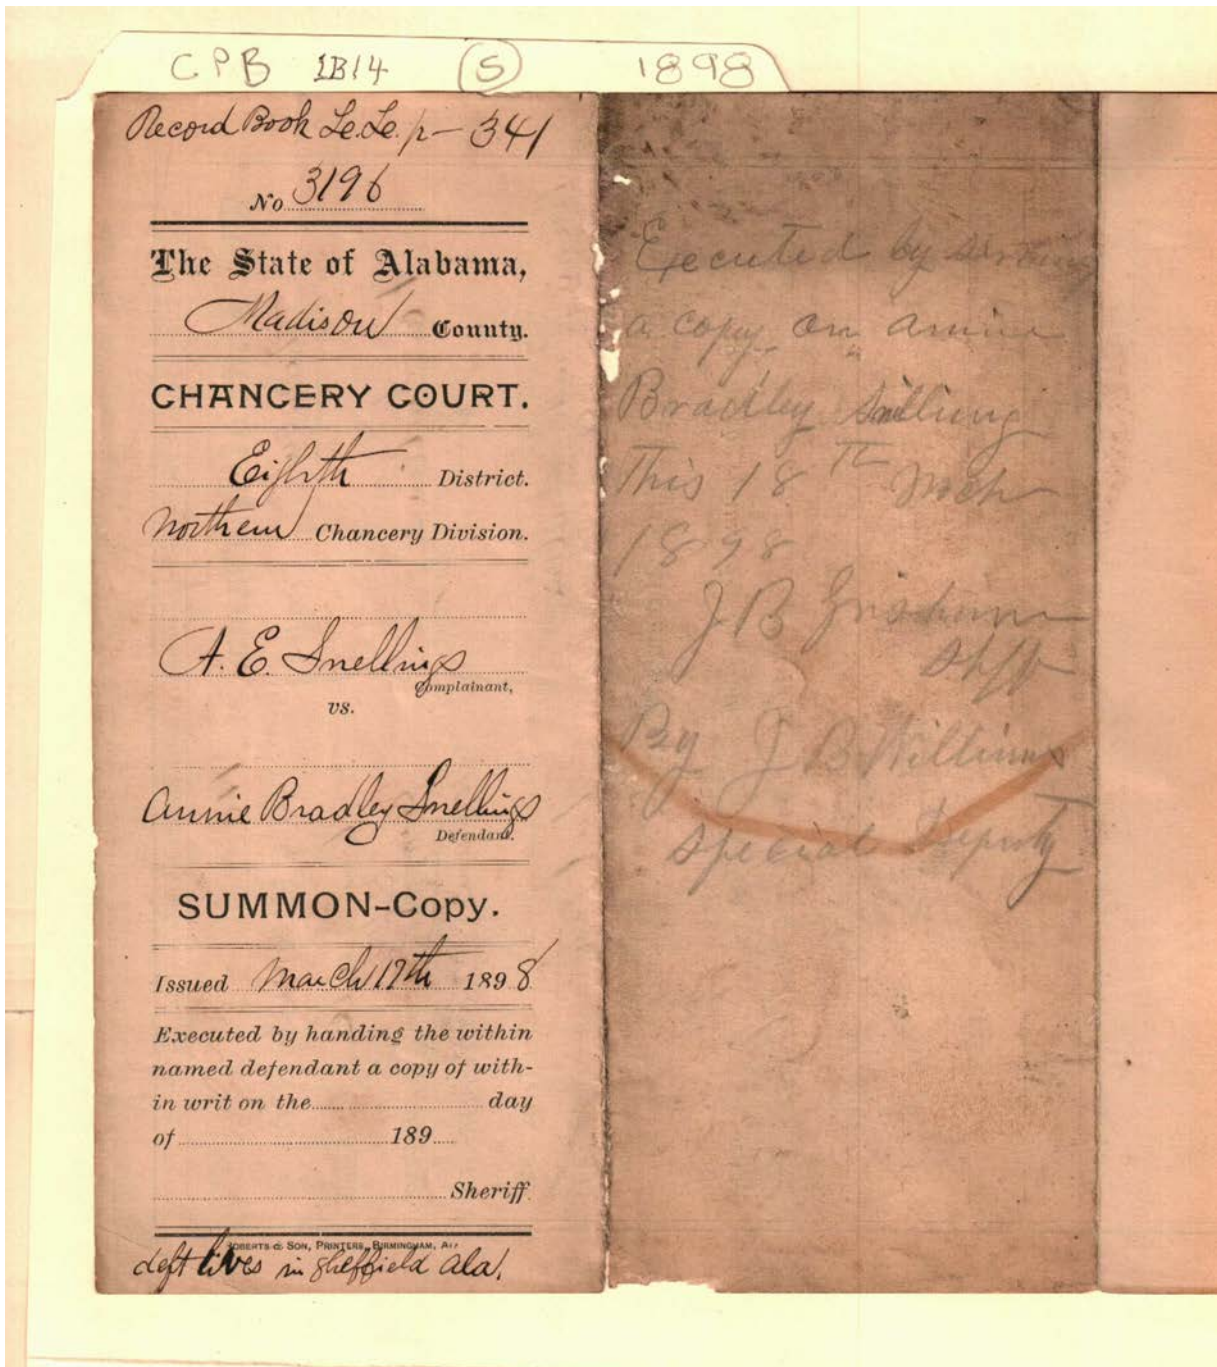 CPB 1B14 (S) 1898
Record Book Le.Le. p- 341
No 3196
The State of Alabama,
Madison County.
CHANCERY COURT.
Eighth District.
Northern Chancery Division.
A. E. Snellings
Complainant,
vs.
Annie Bradley Snellings
Defendant.
SUMMON-Copy.
Issued March 17th 1898
Executed by handing the within
named defendant a copy of with-
in writ on the day
of 189
Sheriff.
ROBERTS & SON, PRINTERS, BIRMINGHAM,
deft lives in Sheffield ala.
Executed by serving
a copy on annie
Bradley Snelling
This 18 th Mch
1898
J B
Shff
By J B Williams
Special Deputy